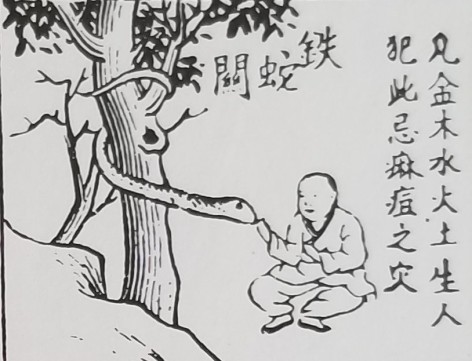 凡金木水火土生人
犯此忌痲痘之灾
鐵蛇關